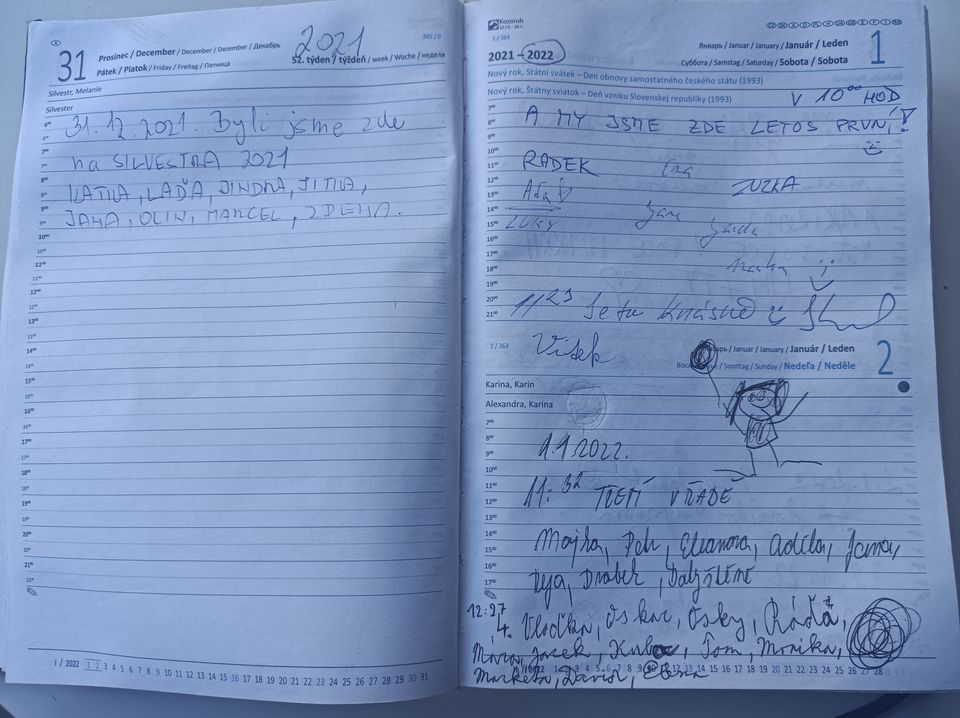 31
Prosinec / December / December / Dezember / Декабрь
Pátek / Piatok / Friday / Freitag / Пятница
2021
365 / 0
52. týden / týždeň / week / Woche / неделя
Silvestr, Melanie
Silvester
31.12.2021. Byli jsme zde
na SILVESTRA 2021
KATKA, LAĎA, JINDRA, JITKA,
JANA, OLIN, MARCEL, ZDENA.
I / 2022 1 2 3 4 5 6 7 8 9 10 11 12 13 14 15 16 17 18 19 20 21 22 23 24 25 26 27 28 29 30 31
Kozoroh
1 / 364
2021 – 2022
Январь / Januar / January / Január / Leden
Суббота / Samstag / Saturday / Sobota / Sobota
1
Nový rok, Státní svátek – Den obnovy samostatného českého státu (1993)
Nový rok, Štátny sviatok – Deň vzniku Slovenskej republiky (1993)
V 10⁰⁰ HOD
A MY JSME ZDE LETOS PRVNÍ!
RADEK
ZUZKA
Jana
11 23 Je tu krásně
Vítek
2 / 363
Январь / Januar / January / Január / Leden
/ Sonntag / Sunday / Nedeľa / Neděle
2
Karina, Karin
Alexandra, Karina
1.1.2022.
11:32 TŘETÍ V ŘADĚ
Majka, Petr, Eleanora, Adéla, Jana,
Drabek
12:27
4. Vlaďka, Oskar, Osky, Ráďa,
Mára, Jacek, Tom, Monika,
Markéta, David, Elena